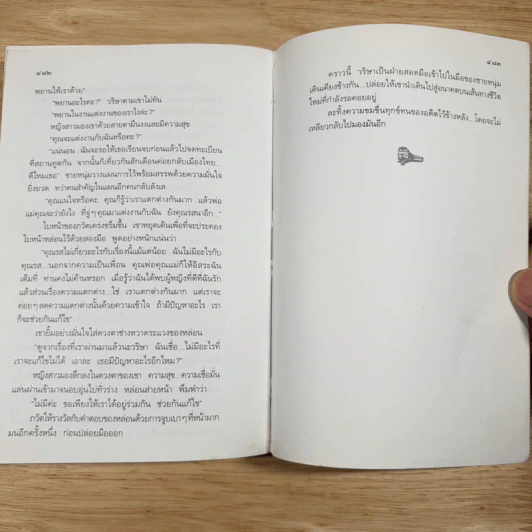 ๔๘๒
พยานให้เราด้วย"
"พยานอะไรคะ?" วริษาตามเขาไม่ทัน
"พยานในงานแต่งงานของเราไงล่ะ?"
หญิงสาวมองเขาด้วยสายตามึนงงและมีความสุข
"คุณจะแต่งงานกับฉันหรือคะ?"
"แน่นอน ฉันจะรอให้เธอเรียนจบก่อนแล้วไปจดทะเบียน
ที่สถานทูตกัน จากนั้นก็เที่ยวกันสักเดือนค่อยกลับเมืองไทย...
ดีไหมเธอ" ชายหนุ่มวางแผนการไว้พร้อมสรรพด้วยความมั่นใจ
ยิ่งยวด ทว่าคนสำคัญในแผนอีกคนกลับลังเล
"คุณแน่ใจหรือคะ คุณก็รู้ว่าเราแตกต่างกันมาก แล้วพ่อ
แม่คุณจะว่ายังไง ที่จู่ๆคุณมาแต่งงานกับฉัน ยังคุณรสนาอีก..."
ใบหน้าของภวัตเคร่งขรึมขึ้น เขาหยุดเดินเพื่อที่จะประคอง
ใบหน้าหล่อนไว้ด้วยสองมือ พูดอย่างหนักแน่นว่า
"คุณรสไม่เกี่ยวอะไรกับเรื่องนี้แม้แต่น้อย ฉันไม่มีอะไรกับ
คุณรส...นอกจากความเป็นเพื่อน คุณพ่อคุณแม่ก็ให้อิสระฉัน
เต็มที่ ท่านคงไม่ค้านหรอก เมื่อรู้ว่าฉันได้พบผู้หญิงที่ดีที่ฉันรัก
แล้วส่วนเรื่องความแตกต่าง...ใช่ เราแตกต่างกันมาก แต่เราจะ
ค่อยๆลดความแตกต่างนั้นด้วยความเข้าใจ ถ้ามีปัญหาอะไร เรา
ก็จะช่วยกันแก้ไข"
เขายิ้มอย่างมั่นใจใส่ดวงตาช่างหวาดระแวงของหล่อน
"ดูจากเรื่องที่เราผ่านมาแล้วนะวริษา ฉันเชื่อ...ไม่มีอะไรที่
เราจะแก้ไขไม่ได้ เอาละ เธอมีปัญหาอะไรอีกไหม?"
หญิงสาวมองลึกลงในดวงตาของเขา ความสุข...ความเชื่อมั่น
แล่นผ่านเข้ามาจนอบอุ่นไปทั่วร่าง หล่อนส่ายหน้า พึมพำว่า
"ไม่มีค่ะ ขอเพียงให้เราได้อยู่ร่วมกัน ช่วยกันแก้ไข"
ภวัตให้รางวัลกับคำตอบของหล่อนด้วยการจูบเบาๆที่หน้าผาก
มนอีกครั้งหนึ่ง ก่อนปล่อยมือออก
๔๘๓
คราวนี้ วริษาเป็นฝ่ายสอดมือเข้าไปในมือของชายหนุ่ม
เดินเคียงข้างกัน...ปล่อยให้เขานำเดินไปสู่อนาคตบนเส้นทางชีวิต
ใหม่ที่กำลังรอคอยอยู่
ละทิ้งความขมขื่นทุกข์ทนของอดีตไว้ข้างหลัง...โดยจะไม่
เหลียวกลับไปมองมันอีก